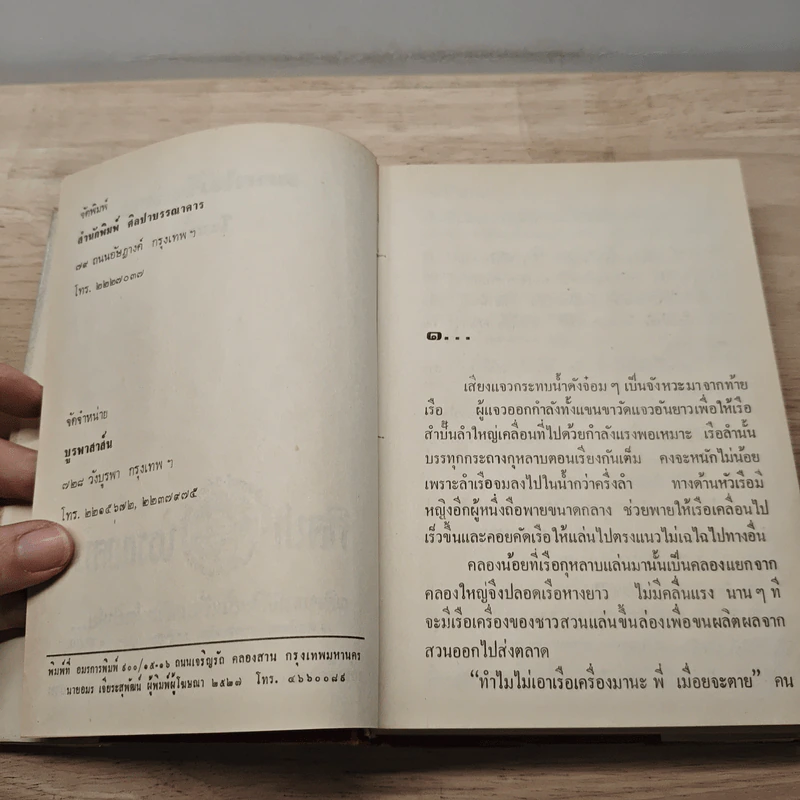 จัดพิมพ์
สำนักพิมพ์ ศิลปาบรรณาคาร
๗๙ ถนนอัษฎางค์ กรุงเทพ ฯ
โทร. ๒๒๒๗๐๓๗
จัดจำหน่าย
บูรพาสาส์น
๗๒๘ วังบูรพา กรุงเทพ ฯ
โทร. ๒๒๑๕๖๗๒, ๒๒๓๗๙๗๕
พิมพ์ที่ อมรการพิมพ์ ๙๐๐/๑๕-๑๖ ถนนเจริญรัถ คลองสาน กรุงเทพมหานคร
นายอมร เจียระสุพัฒน์ ผู้พิมพ์ผู้โฆษณา ๒๕๒๗ โทร. ๔๖๖๐๐๘๙
๑...
เสียงแจวกระทบน้ำดังจ๋อม ๆ เป็นจังหวะมาจากท้าย
เรือ ผู้แจวออกกำลังทั้งแขนขาวัดแจวอันยาวเพื่อให้เรือ
สำปั้นลำใหญ่เคลื่อนที่ไปด้วยกำลังแรงพอเหมาะ เรือลำนั้น
บรรทุกกระถางกุหลาบตอนเรียงกันเต็ม คงจะหนักไม่น้อย
เพราะลำเรือจมลงไปในน้ำกว่าครึ่งลำ ทางด้านหัวเรือมี
หญิงอีกผู้หนึ่งถือพายขนาดกลาง ช่วยพายให้เรือเคลื่อนไป
เร็วขึ้นและคอยคัดเรือให้แล่นไปตรงแนวไม่เฉไฉไปทางอื่น
คลองน้อยที่เรือกุหลาบแล่นมานั้นเป็นคลองแยกจาก
คลองใหญ่จึงปลอดเรือหางยาว ไม่มีคลื่นแรง นาน ๆ ที
จะมีเรือเครื่องของชาวสวนแล่นขึ้นล่องเพื่อขนผลิตผลจาก
สวนออกไปส่งตลาด
“ทำไมไม่เอาเรือเครื่องมานะ พี่ เมื่อยจะตาย” คน